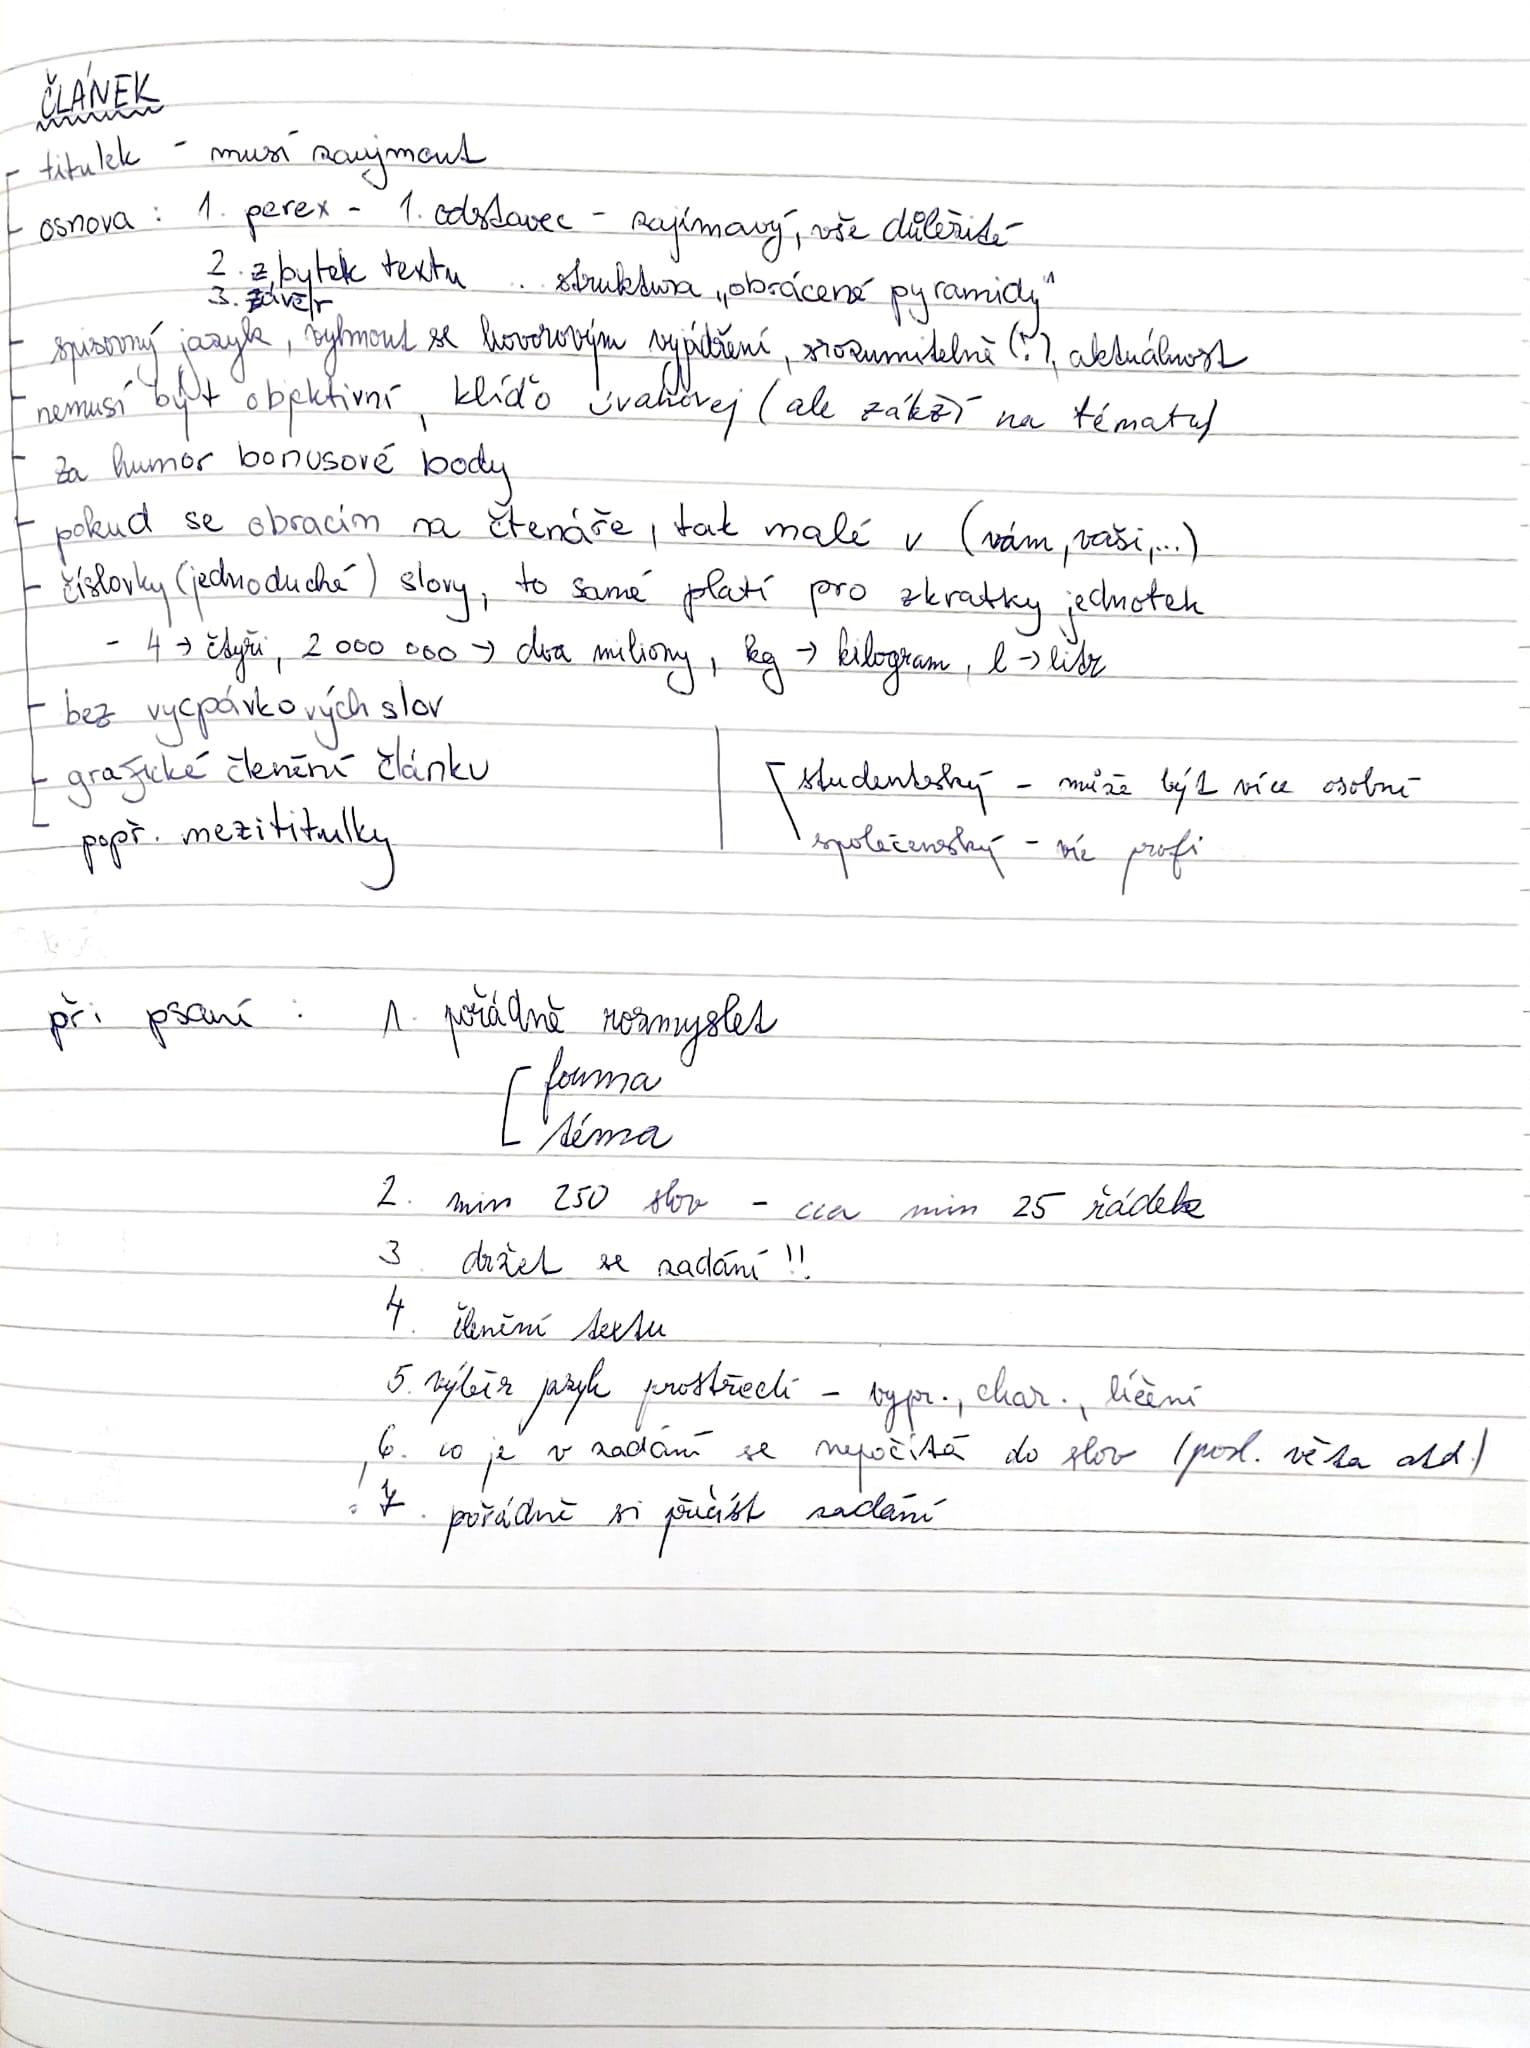 ČLÁNEK
- titulek - musí zaujmout
- osnova : 1. perex - 1. odstavec - zajímavý, vše důležité
2. zbytek textu .. struktura „obrácené pyramidy"
3. závěr
- spisovný jazyk, vyhnout se hovorovým vyjádření, srozumitelně (?), aktuálnost
- nemusí být objektivní, klíďo úvahovej (ale záleží na tématu)
- za humor bonusové body
- pokud se obracím na čtenáře, tak malé v (vám, vaši,...)
- číslovky (jednoduché) slovy, to samé platí pro zkratky jednotek
- 4 → čtyři, 2 000 000 → dva miliony, kg → kilogram, l → litr
- bez vycpávkových slov
- grafické členění článku
popř. mezititulky
studentský - může být více osobní
společenský - víc profi
při psaní : 1. pořádně rozmyslet
forma
téma
2. min 250 slov - cca min 25 řádek
3. držet se zadání !!
4. členění textu
5. výběr jazyk prostředí - vypr., char., líčení
6. co je v zadání se nepočítá do slov (posl. věta atd.)
! 7. pořádně si přečíst zadání